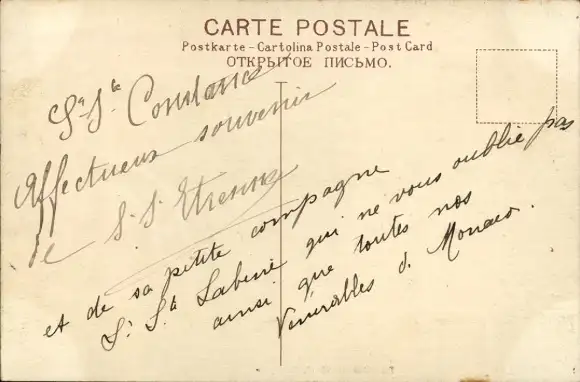 CARTE POSTALE
Postkarte - Cartolina Postale - Post Card
ОТКРЫТОЕ ПИСЬМО.
Sr Ste Constance
Affectueux souvenir
de S. S. Etienne
et de sa petite compagne
Sr Ste Sabine qui ne vous oublie pas
ainsi que toutes nos
Vénérables d. Monaco.